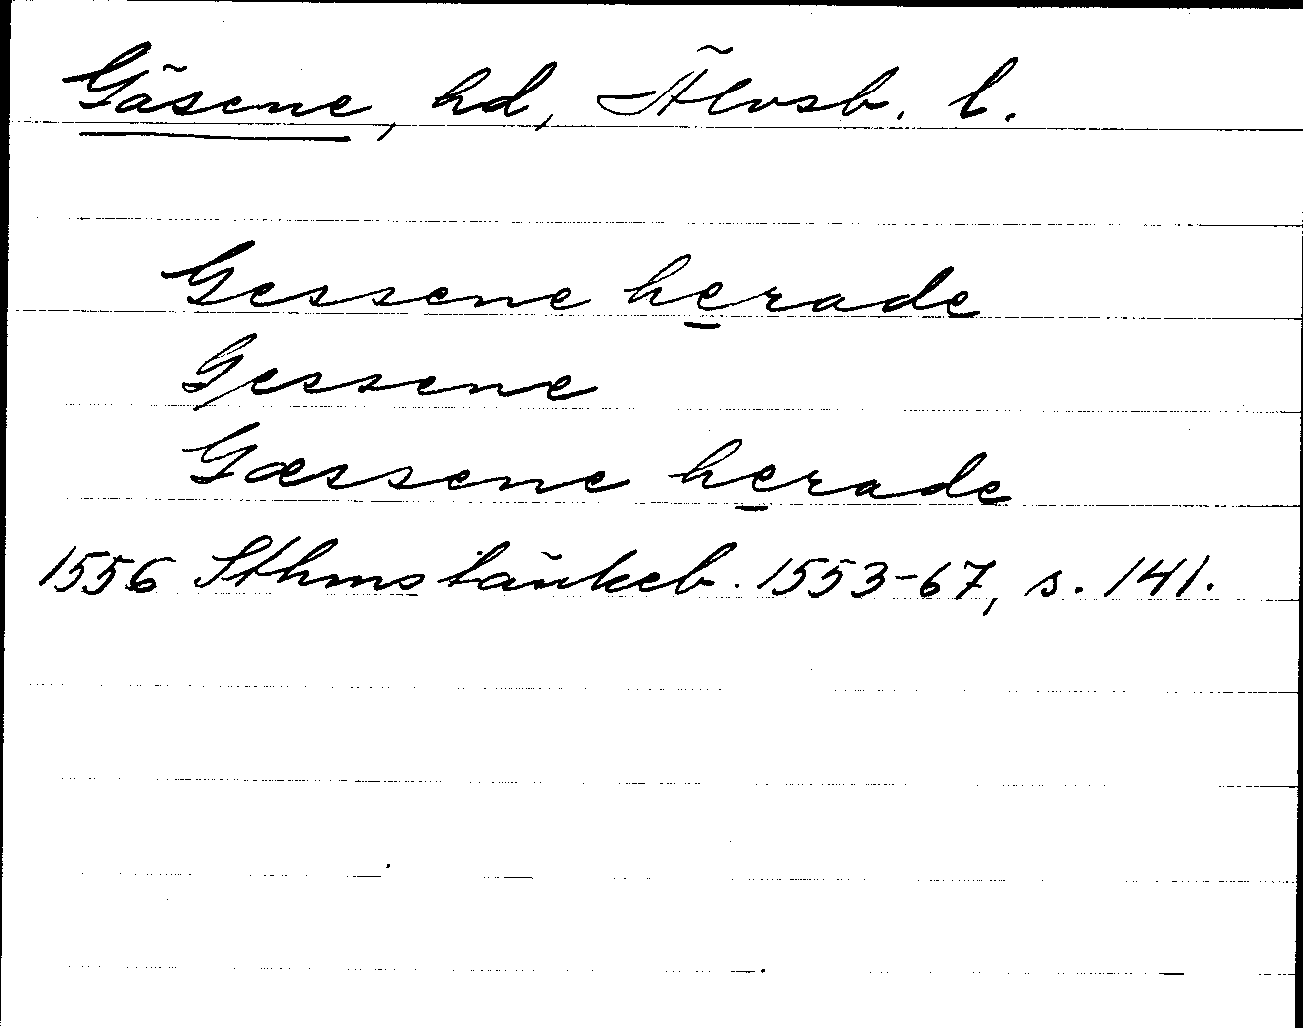 Gäsene, hd, Älvsb. l.
Gessene herade
Gessene
Gæssene herade
1556 Sthms tänkeb. 1553-67, s. 141.